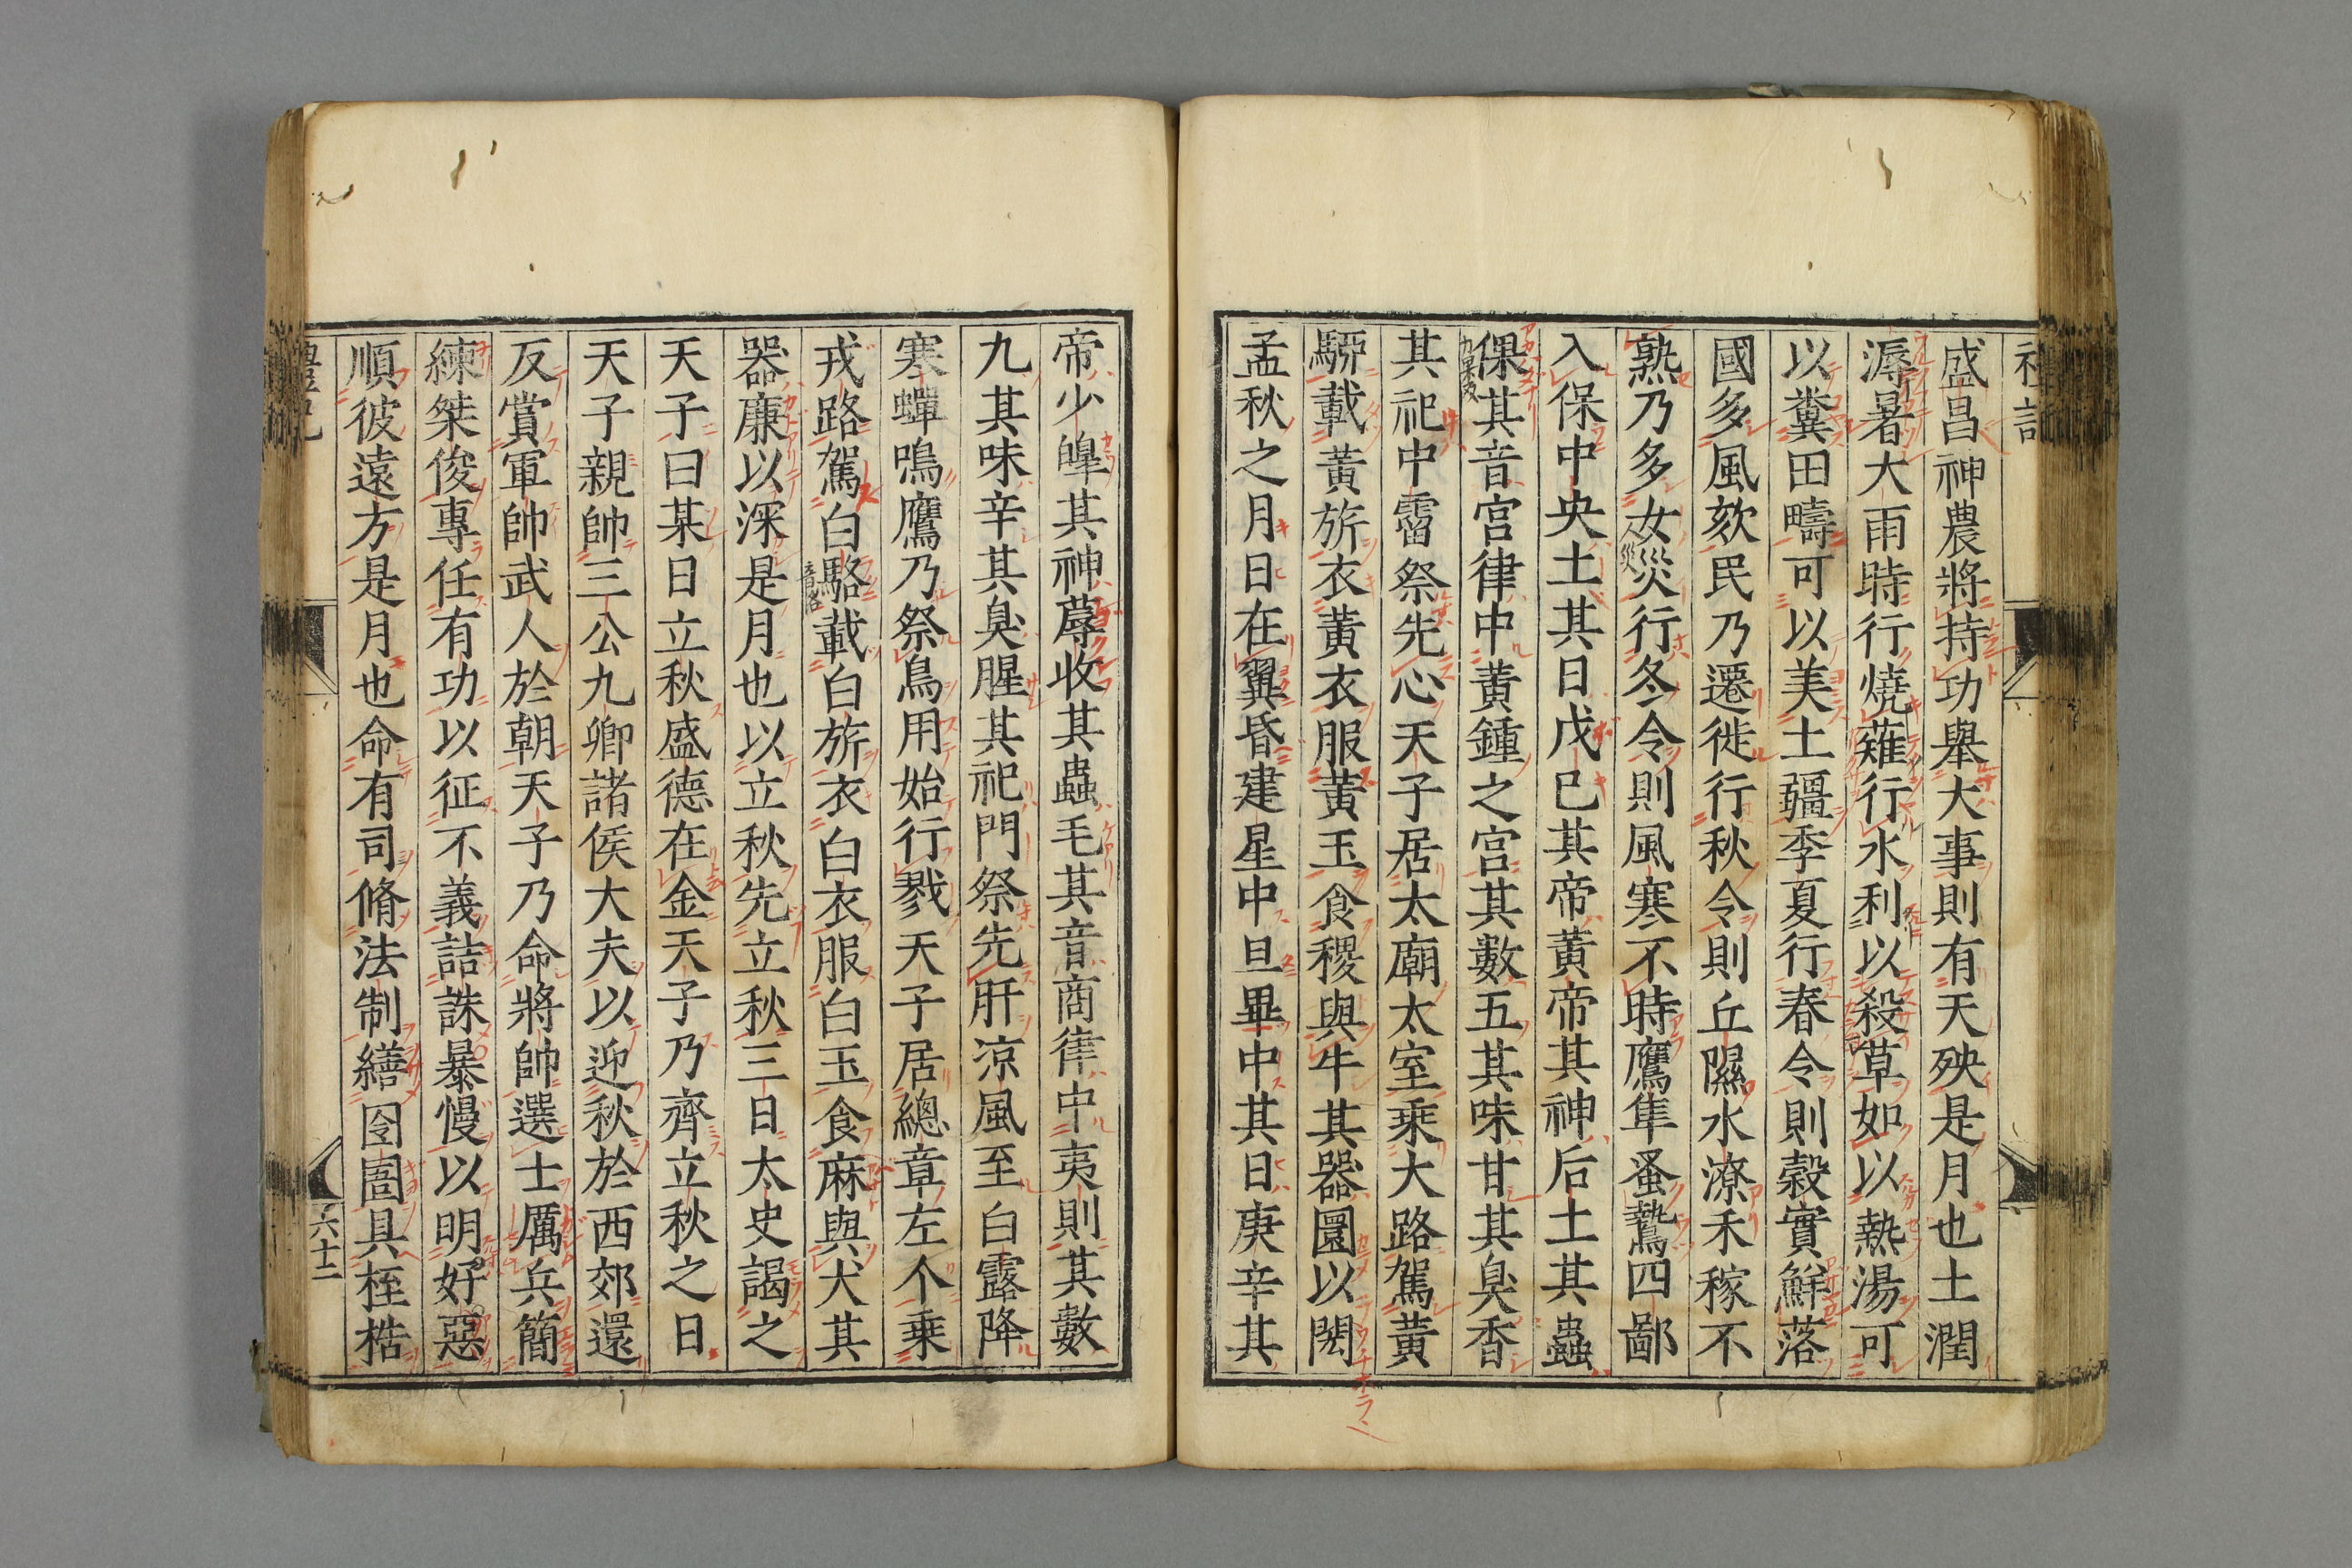 禮記
盛昌神農將持功舉大事則有天殃是月也土潤
溽暑大雨時行燒薙行水利以殺草如以熱湯可
以糞田疇可以美土疆季夏行春令則穀實鮮落
國多風欬民乃遷徙行秋令則丘隰水潦禾稼不
熟乃多女災行冬令則風寒不時鷹隼蚤鷙四鄙
入保中央土其日戊巳其帝黃帝其神后土其蟲
倮其音宮律中黃鍾之宮其數五其味甘其臭香
其祀中霤祭先心天子居太廟太室乘大路駕黃
騮載黃旂衣黃衣服黃玉食稷與牛其器圜以閎
孟秋之月日在翼昏建星中旦畢中其日庚辛其
帝少皡其神蓐收其蟲毛其音商律中夷則其數
九其味辛其臭腥其祀門祭先肝凉風至白露降
寒蟬鳴鷹乃祭鳥用始行戮天子居總章左个乘
戎路駕白駱載白旂衣白衣服白玉食麻與犬其
器廉以深是月也以立秋先立秋三日太史謁之
天子曰某日立秋盛德在金天子乃齊立秋之日
天子親帥三公九卿諸侯大夫以迎秋於西郊還
反賞軍帥武人於朝天子乃命將帥選士厲兵簡
練桀俊專任有功以征不義詰誅暴慢以明好惡
順彼遠方是月也命有司脩法制繕囹圄具桎梏
禮記
六十二